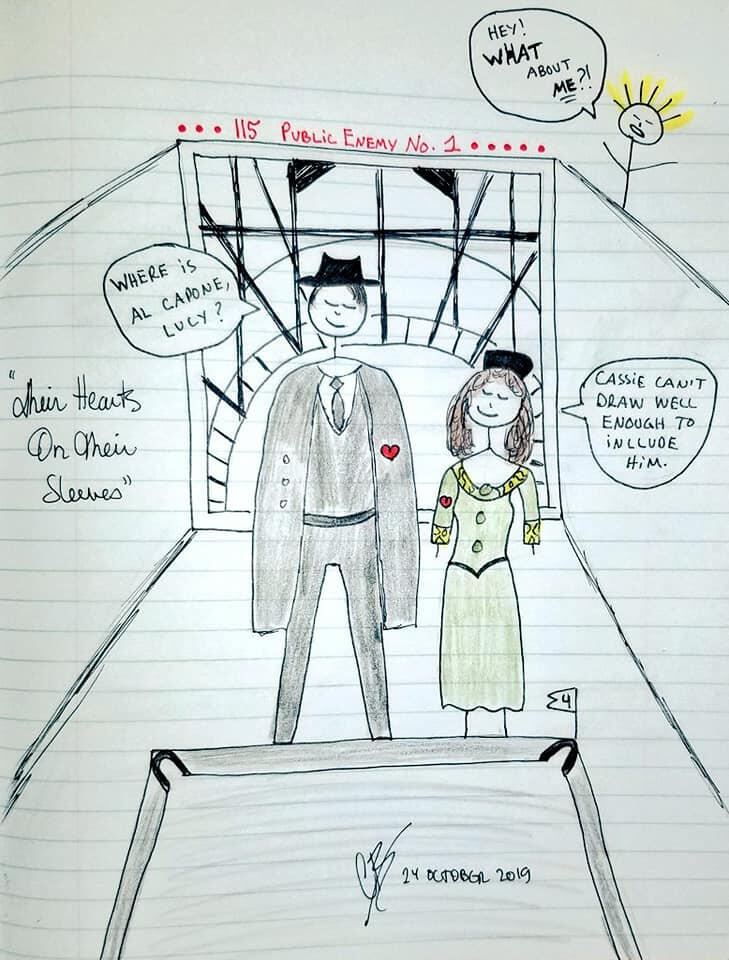 HEY!
WHAT
ABOUT
ME?!
••• 115 PUBLIC ENEMY NO. 1 •••••
WHERE IS
AL CAPONE,
LUCY?
"Their Hearts
On Their
Sleeves"
CASSIE CAN'T
DRAW WELL
ENOUGH TO
INCLUDE
HIM.
Σ4
24 OCTOBER 2019